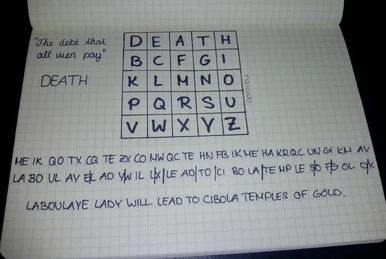 "The debt that
all men pay"
DEATH
D E A T H
B C F G I
K L M N O
P Q R S U
V W X Y Z
ME IK QO TX CQ TE ZX CO MW QC TE HN FB IK ME HA KR QC UN GI KM AV
LA BO UL AY E/L AD Y/W IL L/X/LE AD/TO/CI BO LA/TE MP LE S/O F/G OL D/X
LABOULAYE LADY WILL LEAD TO CIBOLA TEMPLES OF GOLD.